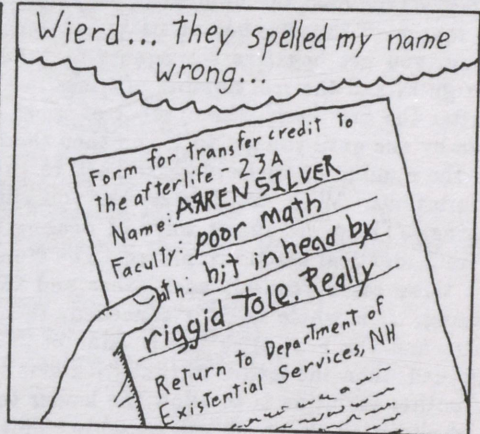 Wierd... they spelled my name
wrong...
Form for transfer credit to
the afterlife 23A
Name: ARREN SILVER
Faculty: poor math
ath: hit in head by
riggid tole. Really
Return to Department of
Existential Services, NH